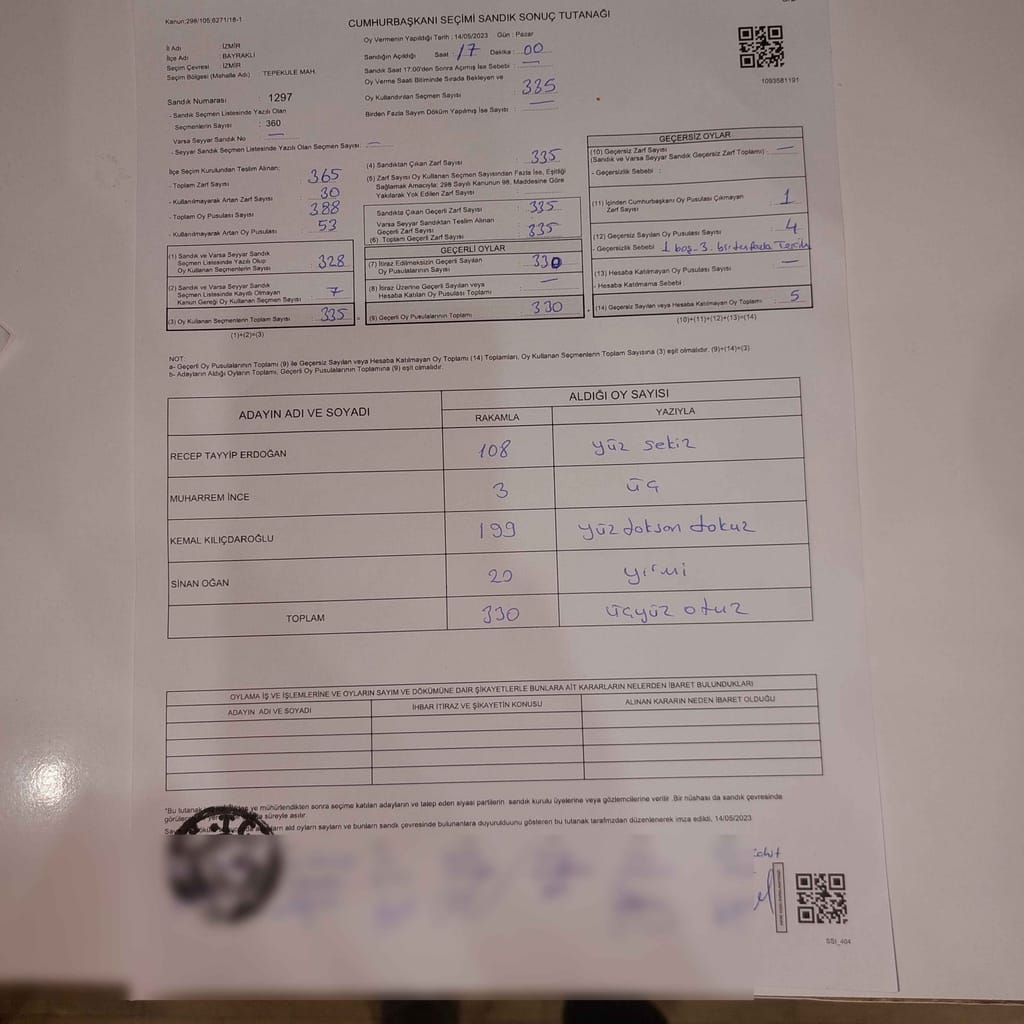 Kanun:298/105;6271/18-1
CUMHURBAŞKANI SEÇİMİ SANDIK SONUÇ TUTANAĞI
İl Adı : İZMİR
İlçe Adı : BAYRAKLI
Seçim Çevresi : İZMİR
Seçim Bölgesi (Mahalle Adı) : TEPEKULE MAH.
Sandık Numarası : 1297
- Sandık Seçmen Listesinde Yazılı Olan
Seçmenlerin Sayısı : 360
Varsa Seyyar Sandık No : —
- Seyyar Sandık Seçmen Listesinde Yazılı Olan Seçmen Sayısı: —
Oy Vermenin Yapıldığı Tarih : 14/05/2023 Gün : Pazar
Sandığın Açıldığı Saat : 17 Dakika : 00
Sandık Saat 17:00'den Sonra Açımış İse Sebebi : —
Oy Verme Saati Bitiminde Sırada Bekleyen ve
Oy Kullandırılan Seçmen Sayısı : 335
Birden Fazla Sayım Döküm Yapılmış İse Sayısı : —
1093581191
İlçe Seçim Kurulundan Teslim Alınan;
- Toplam Zarf Sayısı : 365
- Kullanılmayarak Artan Zarf Sayısı : 30
- Toplam Oy Pusulası Sayısı : 388
- Kullanılmayarak Artan Oy Pusulası : 53
(1) Sandık ve Varsa Seyyar Sandık
Seçmen Listesinde Yazılı Olup
Oy Kullanan Seçmenlerin Sayısı : 328
(2) Sandık ve Varsa Seyyar Sandık
Seçmen Listesinde Kayıtlı Olmayan
Kanun Gereği Oy Kullanan Seçmen Sayısı : 7
(3) Oy Kullanan Seçmenlerin Toplam Sayısı : 335
(1)+(2)=(3)
(4) Sandıktan Çıkan Zarf Sayısı : 335
(5) Zarf Sayısı Oy Kullanan Seçmen Sayısından Fazla İse, Eşitliği
Sağlamak Amacıyla; 298 Sayılı Kanunun 98. Maddesine Göre
Yakılarak Yok Edilen Zarf Sayısı :
Sandıkta Çıkan Geçerli Zarf Sayısı : 335
Varsa Seyyar Sandıktan Teslim Alınan
Geçerli Zarf Sayısı :
(6) Toplam Geçerli Zarf Sayısı : 335
GEÇERLİ OYLAR
(7) İtiraz Edilmeksizin Geçerli Sayılan
Oy Pusulalarının Sayısı : 330
(8) İtiraz Üzerine Geçerli Sayılan veya
Hesaba Katılan Oy Pusulası Toplamı : —
(9) Geçerli Oy Pusulalarının Toplamı : 330
GEÇERSİZ OYLAR
(10) Geçersiz Zarf Sayısı
(Sandık ve Varsa Seyyar Sandık Geçersiz Zarf Toplamı) : —
- Geçersizlik Sebebi :
(11) İçinden Cumhurbaşkanı Oy Pusulası Çıkmayan
Zarf Sayısı : 1
(12) Geçersiz Sayılan Oy Pusulası Sayısı : 4
- Geçersizlik Sebebi : 1 boş - 3. birden fazla Tercih
(13) Hesaba Katılmayan Oy Pusulası Sayısı : —
- Hesaba Katılmama Sebebi :
(14) Geçersiz Sayılan veya Hesaba Katılmayan Oy Toplamı : 5
(10)+(11)+(12)+(13)=(14)
NOT:
a- Geçerli Oy Pusulalarının Toplamı (9) ile Geçersiz Sayılan veya Hesaba Katılmayan Oy Toplamı (14) Toplamları, Oy Kullanan Seçmenlerin Toplam Sayısına (3) eşit olmalıdır. (9)+(14)=(3)
b- Adayların Aldığı Oyların Toplamı, Geçerli Oy Pusulalarının Toplamına (9) eşit olmalıdır.
ADAYIN ADI VE SOYADI
ALDIĞI OY SAYISI
RAKAMLA YAZIYLA
RECEP TAYYİP ERDOĞAN 108 yüz sekiz
MUHARREM İNCE 3 üç
KEMAL KILIÇDAROĞLU 199 yüz doksan dokuz
SİNAN OĞAN 20 yirmi
TOPLAM 330 üçyüz otuz
OYLAMA İŞ VE İŞLEMLERİNE VE OYLARIN SAYIM VE DÖKÜMÜNE DAİR ŞİKAYETLERLE BUNLARA AİT KARARLARIN NELERDEN İBARET BULUNDUKLARI
ADAYIN ADI VE SOYADI İHBAR İTİRAZ VE ŞİKAYETİN KONUSU ALINAN KARARIN NEDEN İBARET OLDUĞU
*Bu tutanak ve mühürlendikten sonra seçime katılan adayların ve talep eden siyasi partilerin sandık kurulu üyelerine veya gözlemcilerine verilir .Bir nüshası da sandık çevresinde
süreyle asılır.
ald oyların sayların ve bunların sandık çevresinde bulunanlara duyurulduunu gösteren bu tutanak tarafımızdan düzenlenerek imza edildi, 14/05/2023
SSI_404